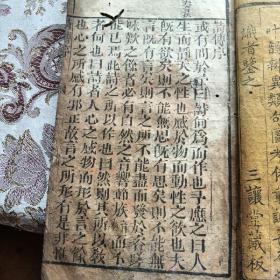 三讓堂藏板
詩傳序
或有問於予曰詩何為而作也予應之曰人
生而靜天之性也感於物而動性之欲也夫
既有欲矣則不能無思既有思矣則不能無
言既有言矣則言之所不能盡而發於咨嗟
咏歎之餘者必有自然之音響節族而不
能已焉此詩之所以作也曰然則其所以教
者何也曰詩者人心之感物而形於言之餘
也心之所感有邪正故言之所形有是非惟